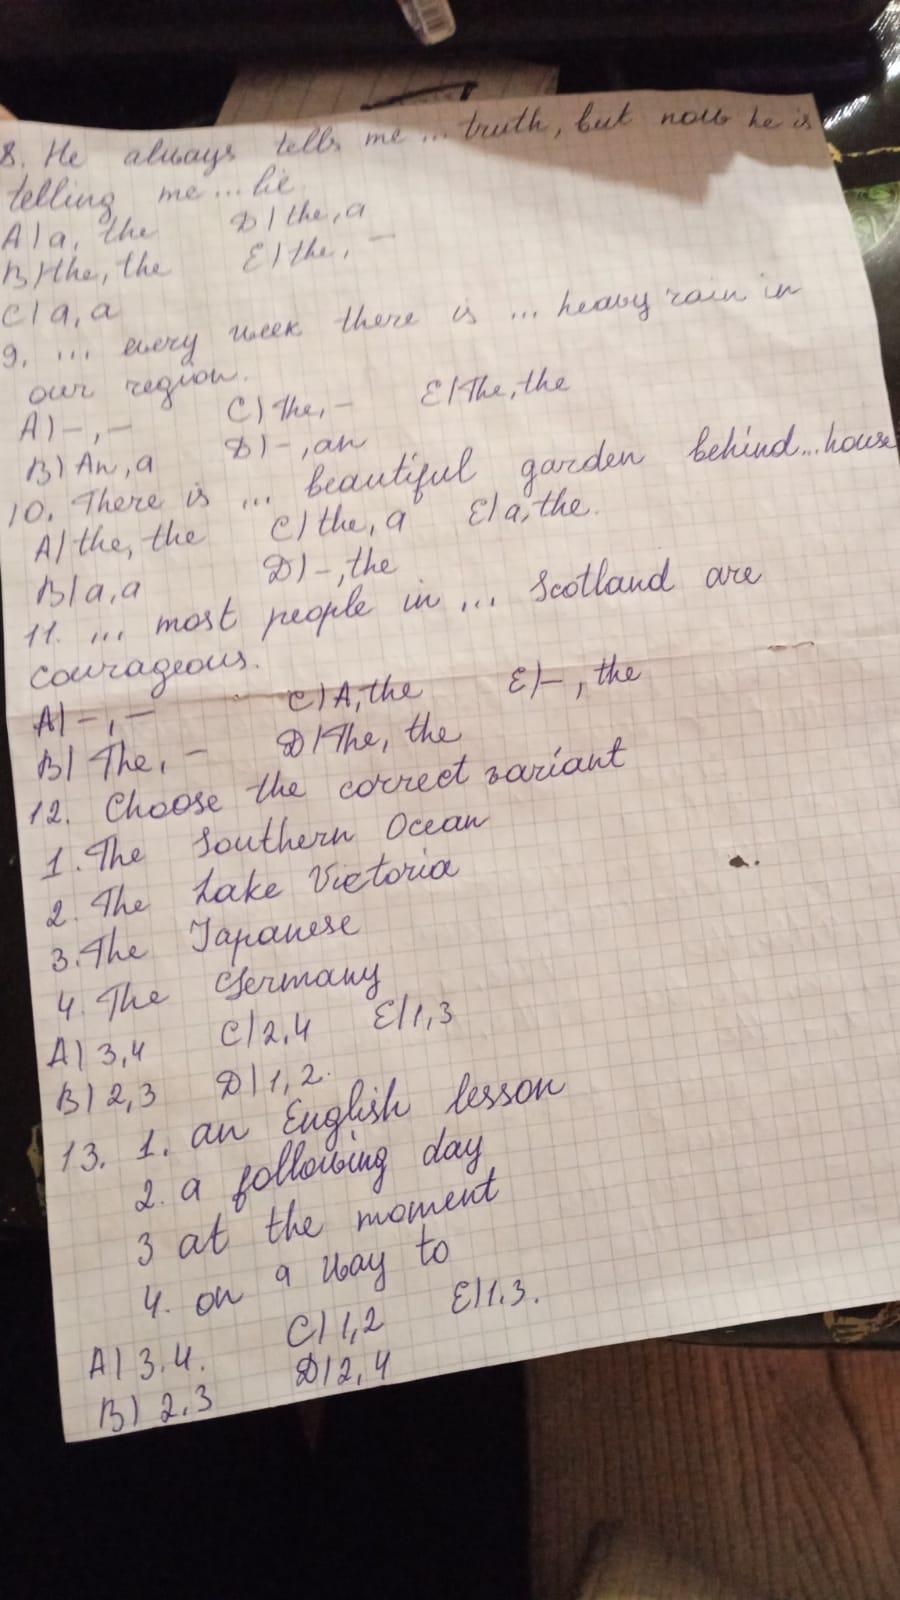 8. He always tells me ... truth, but now he is
telling me ... lie
A) a, the D) the, a
B) the, the E) the, -
C) a, a
9. ... every week there is ... heavy rain in
our region.
A) -, - C) The, - E) The, the
B) An, a D) -, an
10. There is ... beautiful garden behind ... house
A) the, the C) the, a E) a, the.
B) a, a D) -, the
11. ... most people in ... Scotland are
courageous.
A) -, - C) A, the E) -, the
B) The, - D) The, the
12. Choose the correct variant
1. The Southern Ocean
2. The Lake Victoria
3. The Japanese
4. The Germany
A) 3,4 C) 2,4 E) 1,3
B) 2,3 D) 1,2.
13. 1. an English lesson
2. a following day
3 at the moment
4. on a way to
A) 3.4. C) 1,2 E) 1.3.
B) 2.3 D) 2,4